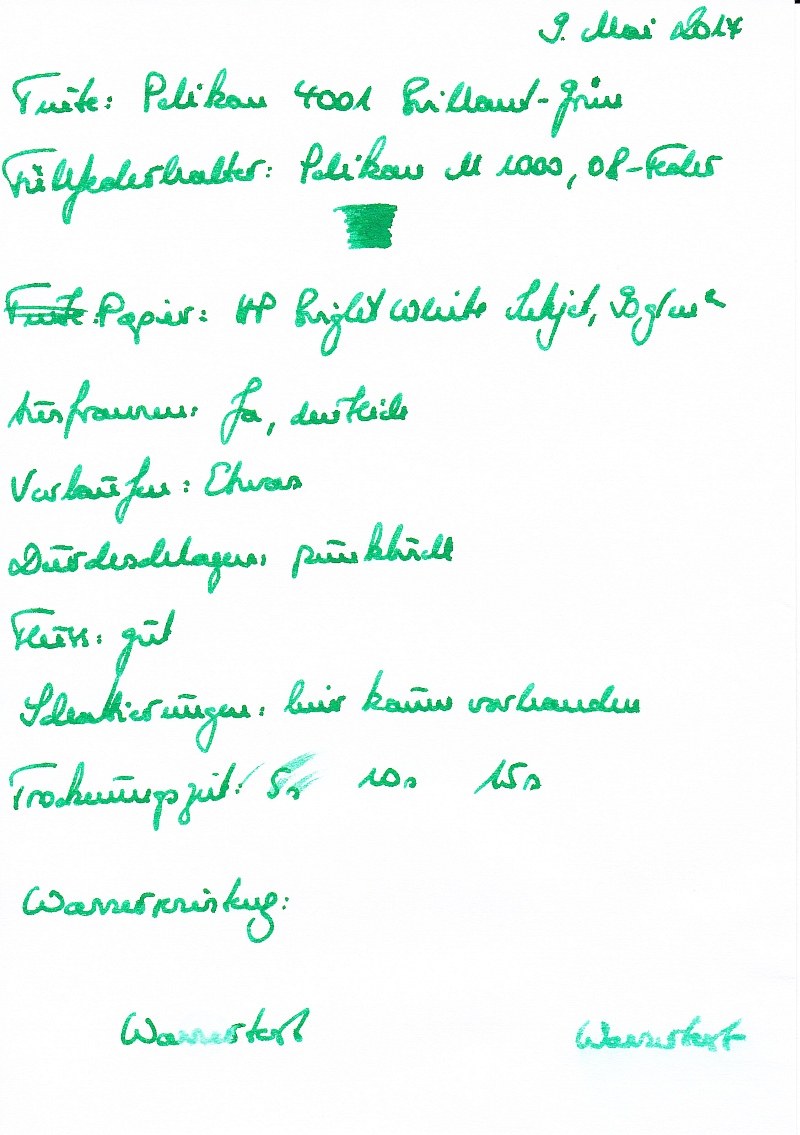 9. Mai 2017
Tinte: Pelikan 4001 Brillant-Grün
Füllfederhalter: Pelikan M 1000, OB-Feder
Tinte Papier: HP Bright White Inkjet, 90g/m²
Ausfransen: Ja, deutlich
Verlaufen: Etwas
Durchschlagen: pünktlich
Fluss: gut
Schattierungen: hier kaum vorhanden
Trocknungszeit: 5s 10s 15s
Wasserfestigkeit:
Wassertest Wassertest